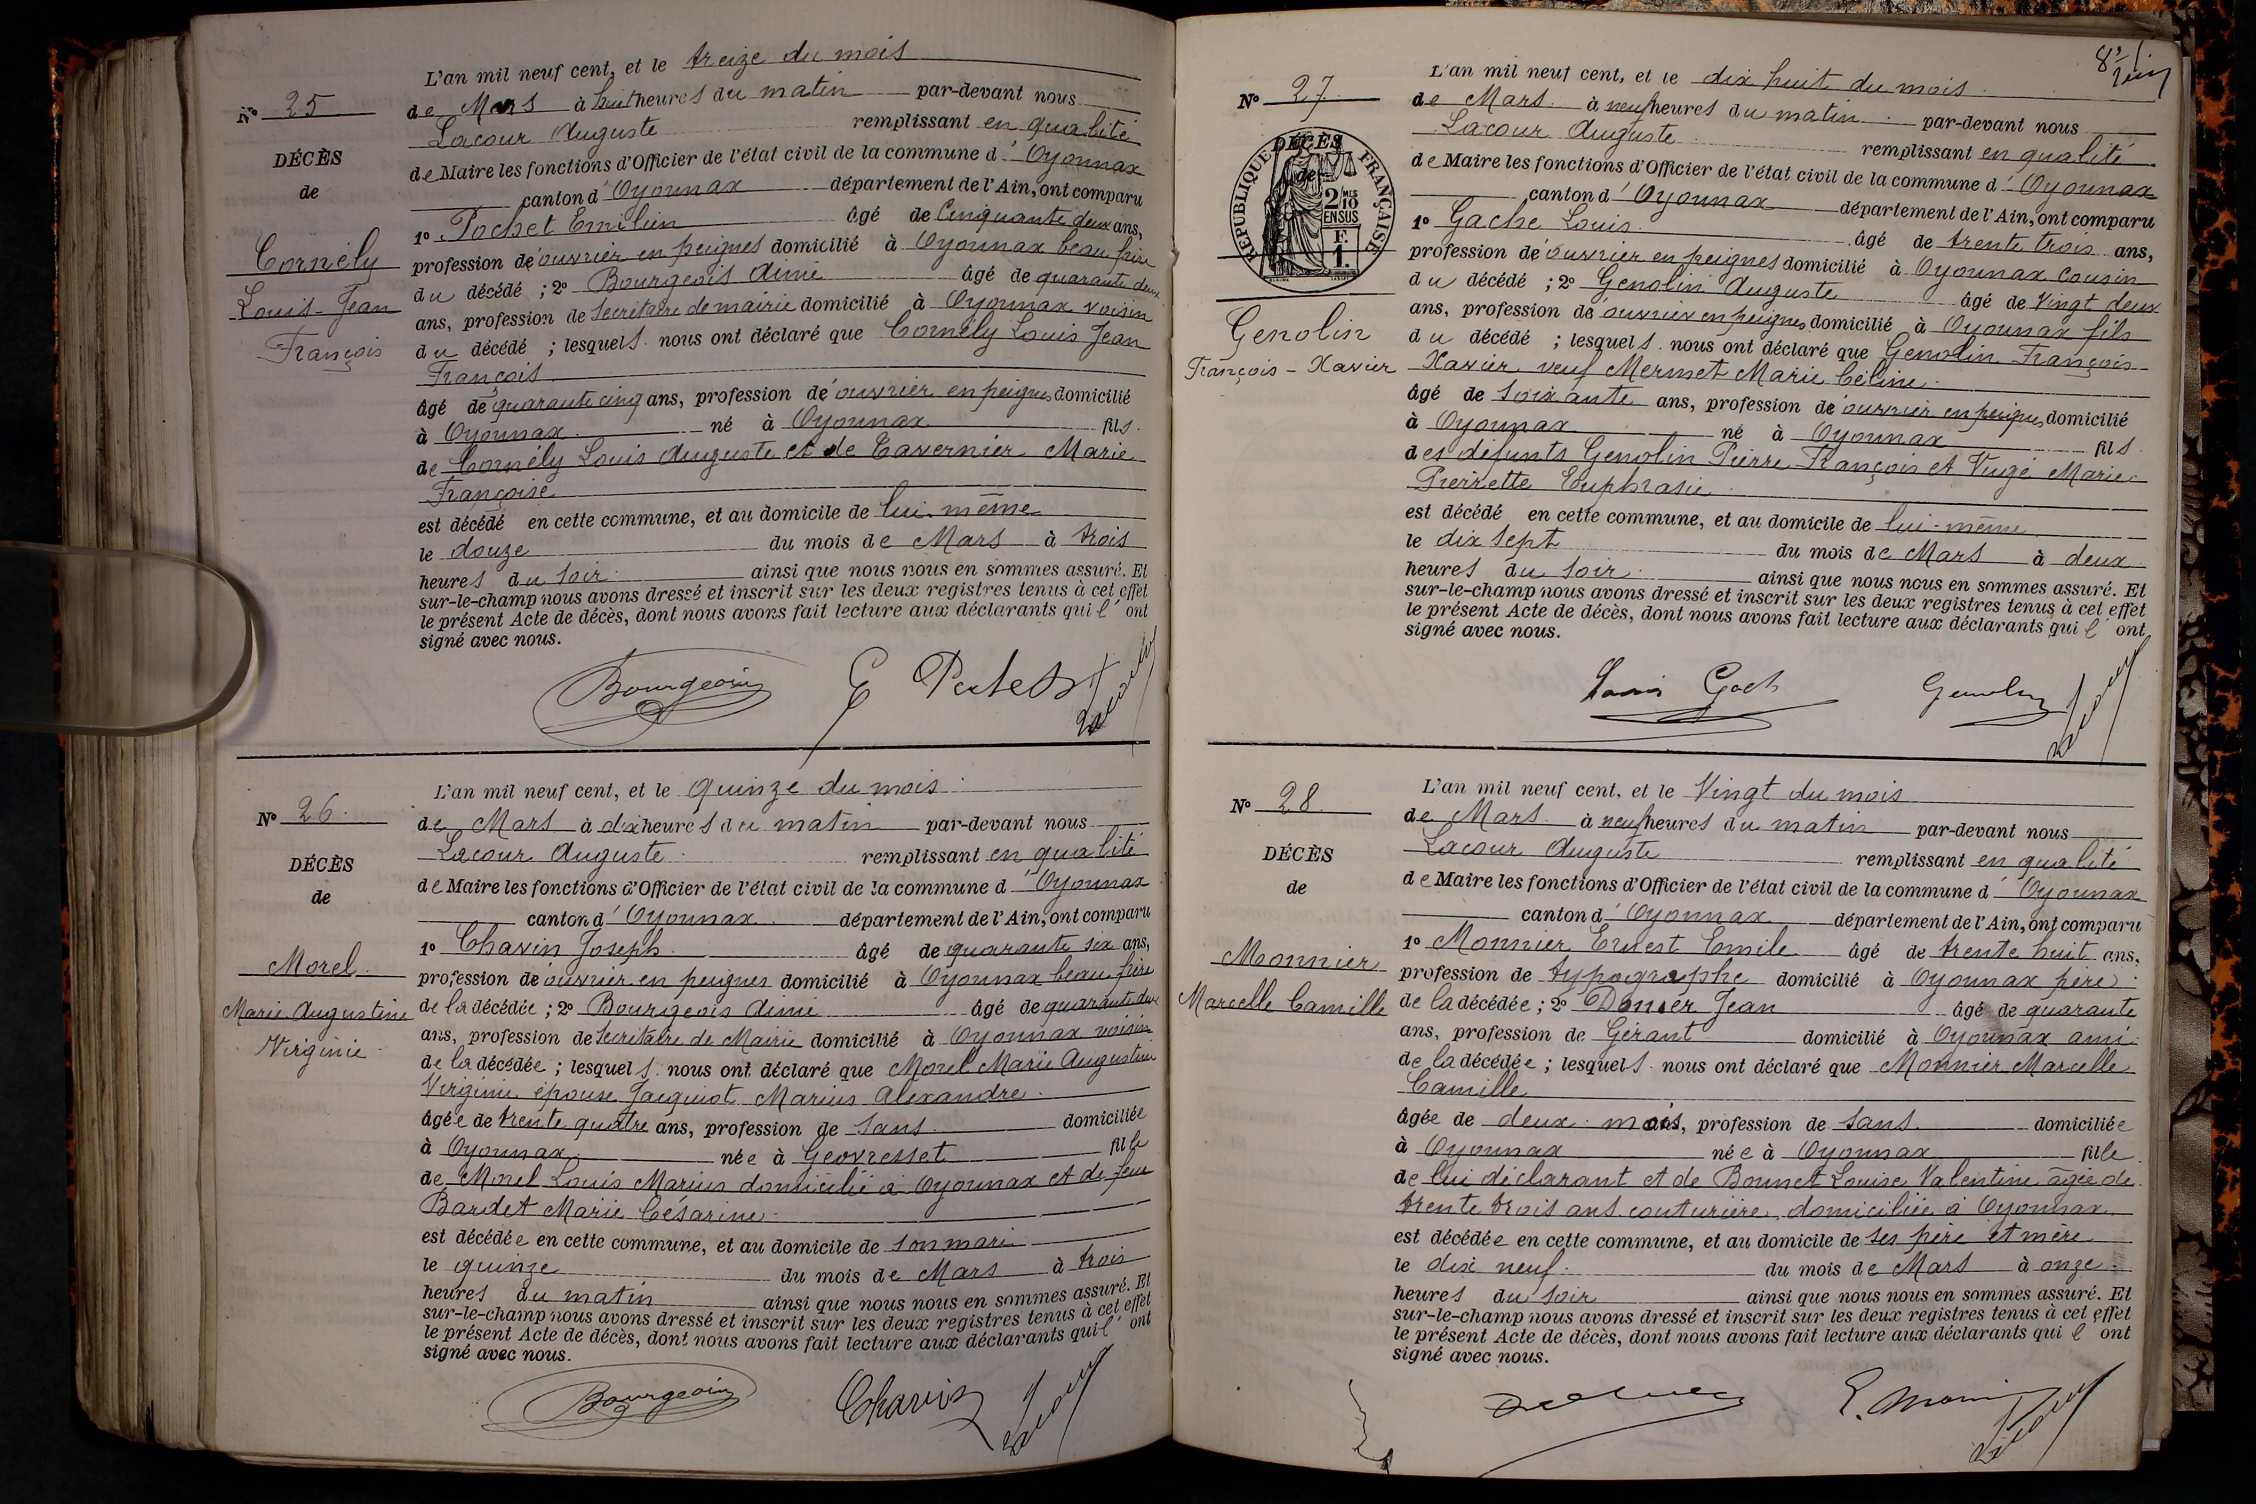 L'an mil neuf cent, et le treize du mois
N° 25
de Mars à huit heures du matin par-devant nous
Lacour Auguste remplissant en qualité
DÉCÈS
de Maire les fonctions d'Officier de l'état civil de la commune d'Oyonnax
de
canton d'Oyonnax département de l'Ain, ont comparu
1° Pochet Emilien âgé de Cinquante deux ans,
Cornély
profession de ouvrier en peignes domicilié à Oyonnax beau frère
du décédé ; 2° Bourgeois Aimé âgé de quarante deux
Louis-Jean
ans, profession de Secrétaire de mairie domicilié à Oyonnax voisin
François
du décédé ; lesquels nous ont déclaré que Cornély Louis Jean
François
âgé de quarante cinq ans, profession de ouvrier en peignes domicilié
à Oyonnax né à Oyonnax fils
de Cornély Louis Auguste et de Tavernier Marie
Françoise
est décédé en cette commune, et au domicile de lui-même
le douze du mois de Mars à trois
heures du soir ainsi que nous nous en sommes assuré. Et
sur-le-champ nous avons dressé et inscrit sur les deux registres tenus à cet effet
le présent Acte de décès, dont nous avons fait lecture aux déclarants qui l'ont
signé avec nous.
Bourgeois E Lacour
L'an mil neuf cent, et le quinze du mois
N° 26
de Mars à dix heures du matin par-devant nous
Lacour Auguste remplissant en qualité
DÉCÈS
de Maire les fonctions d'Officier de l'état civil de la commune d'Oyonnax
de
canton d'Oyonnax département de l'Ain, ont comparu
1° Chavin Joseph âgé de quarante six ans,
Morel
profession de ouvrier en peignes domicilié à Oyonnax beau frère
Marie Augustine
de la décédée ; 2° Bourgeois Aimé âgé de quarante deux
ans, profession de Secrétaire de Mairie domicilié à Oyonnax voisin
Virginie
de la décédée ; lesquels nous ont déclaré que Morel Marie Augustine
Virginie épouse Jacquiot Marius Alexandre
âgée de trente quatre ans, profession de sans domiciliée
à Oyonnax née à Géovresset fille
de Morel Louis Marius domicilié à Oyonnax et de feue
Bardet Marie Césarine
est décédée en cette commune, et au domicile de son mari
le quinze du mois de Mars à trois
heures du matin ainsi que nous nous en sommes assuré. Et
sur-le-champ nous avons dressé et inscrit sur les deux registres tenus à cet effet
le présent Acte de décès, dont nous avons fait lecture aux déclarants qui l'ont
signé avec nous.
Bourgeois Chavin Lacour
L'an mil neuf cent, et le dix huit du mois
N° 27
de Mars à neuf heures du matin par-devant nous
Lacour Auguste remplissant en qualité
DÉCÈS
RÉPUBLIQUE FRANÇAISE
de Maire les fonctions d'Officier de l'état civil de la commune d'Oyonnax
de
2/10 EN SUS
canton d'Oyonnax département de l'Ain, ont comparu
1° Gache Louis âgé de trente trois ans,
profession de ouvrier en peignes domicilié à Oyonnax cousin
du décédé ; 2° Genolin Auguste âgé de vingt deux
Genolin
ans, profession de ouvrier en peignes domicilié à Oyonnax fils
du décédé ; lesquels nous ont déclaré que Genolin François-
François-Xavier
Xavier veuf Mermet Marie Céline
âgé de soixante ans, profession de ouvrier en peignes domicilié
à Oyonnax né à Oyonnax fils
des défunts Genolin Pierre François et Marie
Pierrette Euphrasie
est décédé en cette commune, et au domicile de lui-même
le dix sept du mois de Mars à deux
heures du soir ainsi que nous nous en sommes assuré. Et
sur-le-champ nous avons dressé et inscrit sur les deux registres tenus à cet effet
le présent Acte de décès, dont nous avons fait lecture aux déclarants qui l'ont
signé avec nous.
Louis Gache Genolin Lacour
L'an mil neuf cent, et le Vingt du mois
N° 28
de Mars à neuf heures du matin par-devant nous
Lacour Auguste remplissant en qualité
DÉCÈS
de Maire les fonctions d'Officier de l'état civil de la commune d'Oyonnax
de
canton d'Oyonnax département de l'Ain, ont comparu
1° Monnier Ernest Emile âgé de trente huit ans,
Monnier
profession de typographe domicilié à Oyonnax père
Marcelle Camille
de la décédée ; 2° Jean âgé de quarante
ans, profession de Gérant domicilié à Oyonnax ami
de la décédée ; lesquels nous ont déclaré que Monnier Marcelle
Camille
âgée de deux mois, profession de sans domiciliée
à Oyonnax née à Oyonnax fille
de lui déclarant et de Bonnet Louise Valentine âgée de
trente trois ans couturière, domiciliée à Oyonnax
est décédée en cette commune, et au domicile de ses père et mère
le dix neuf du mois de Mars à onze
heures du soir ainsi que nous nous en sommes assuré. Et
sur-le-champ nous avons dressé et inscrit sur les deux registres tenus à cet effet
le présent Acte de décès, dont nous avons fait lecture aux déclarants qui l'ont
signé avec nous.
Lacour